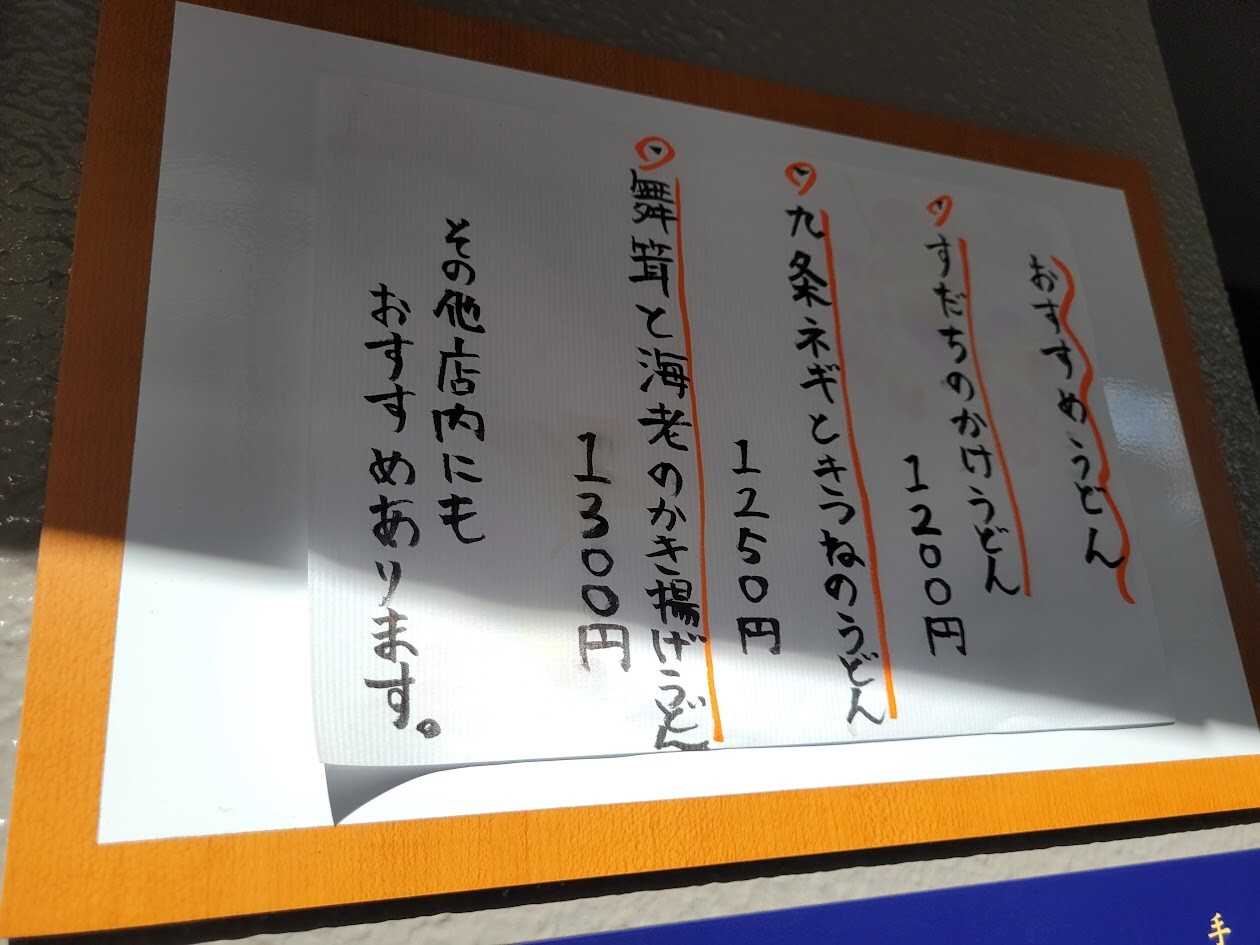 おすすめうどん
すだちのかけうどん
1200円
九条ネギときつねのうどん
1250円
舞茸と海老のかき揚げうどん
1300円
その他店内にも
おすすめあります。
手